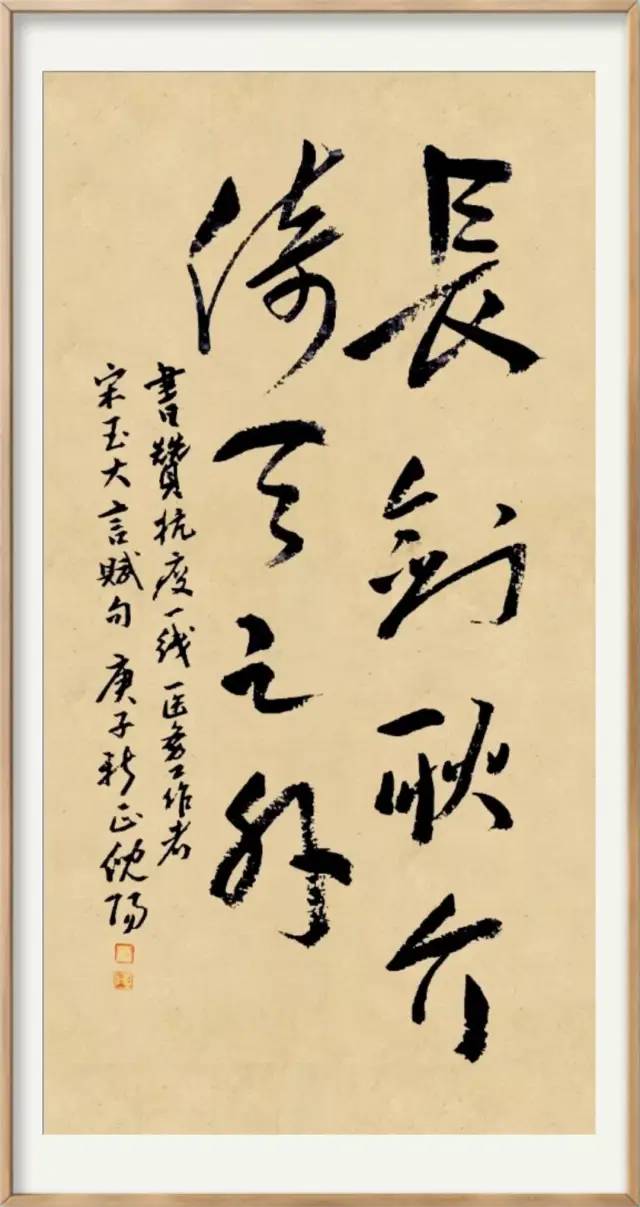 長劍耿介
倚天之外
書贊抗疫一线医务工作者
宋玉大言賦句 庚子新正 倪陽